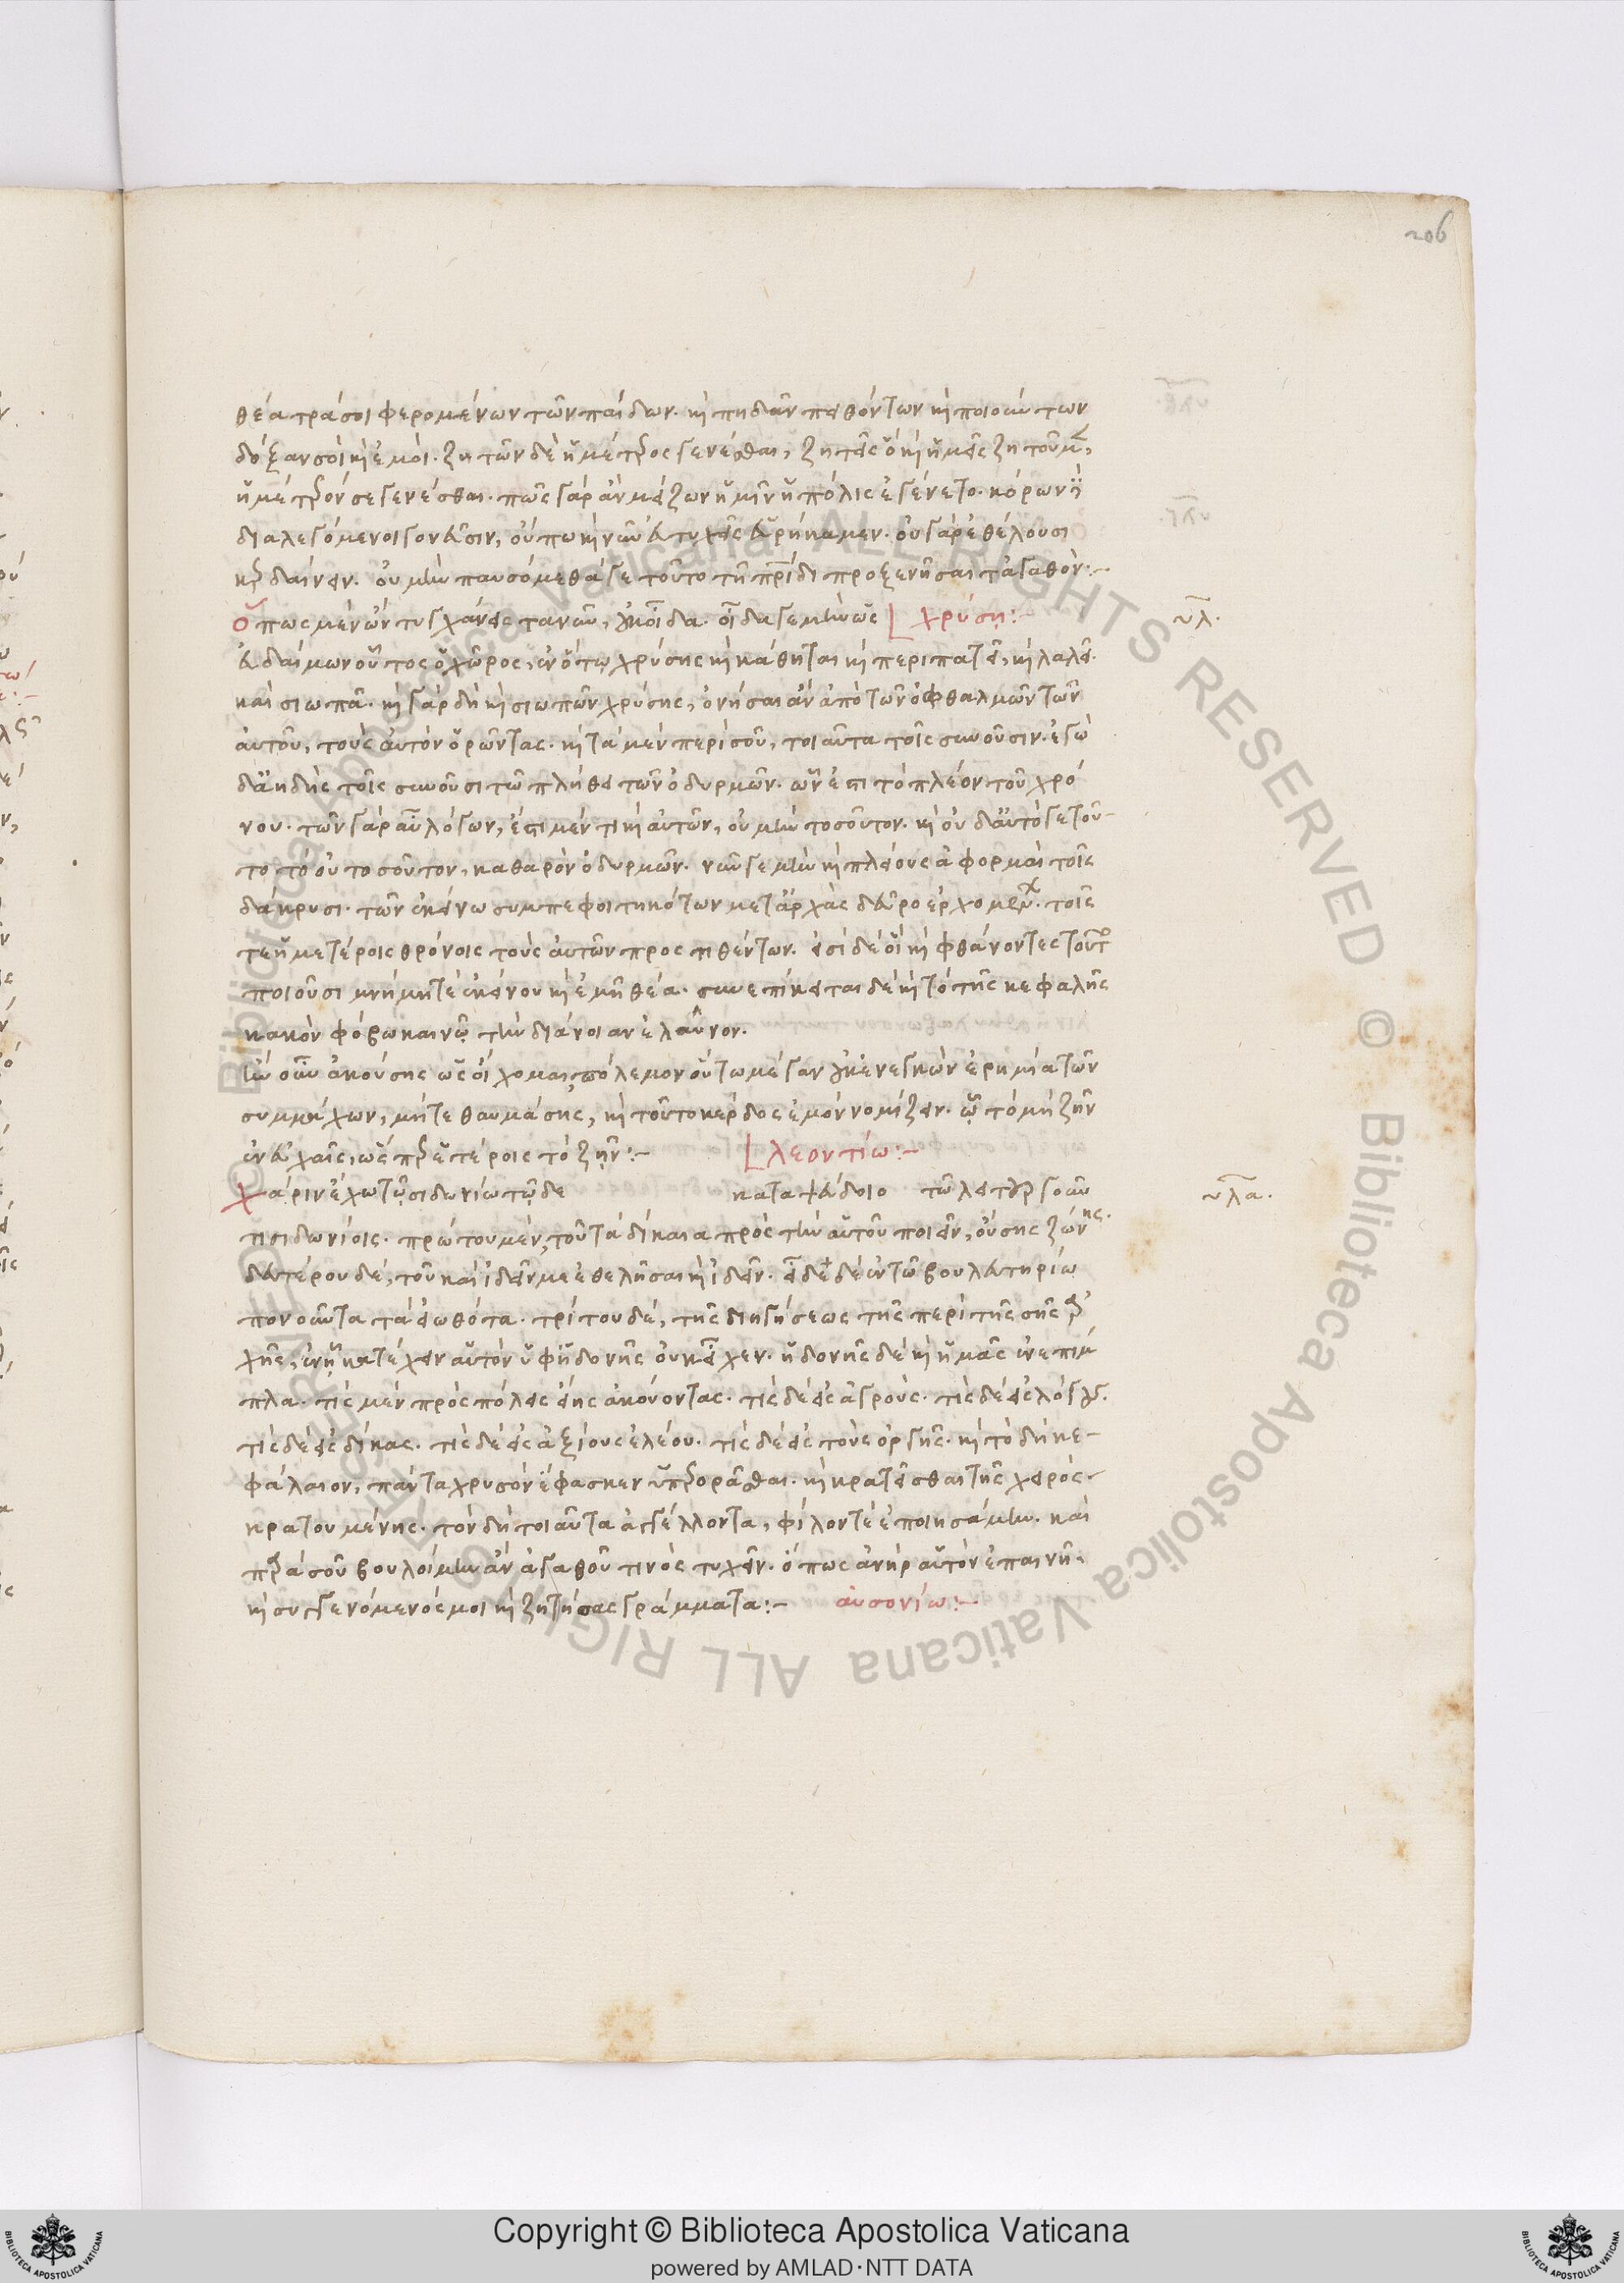 206
θέατρά σοι φερομένων τῶν παίδων. καὶ πηδᾶν πειθόντων καὶ ποιούντων
δόξαν σοὶ καὶ ἐμοί. ζητῶν δὲ ἡμέτερος γενέσθαι, ζητεῖς ὃ καὶ ἡμεῖς ζητοῦμεν,
ἡμέτερόν σε γενέσθαι. πῶς γὰρ ἂν μείζων ἡμῖν ἡ πόλις ἐγένετο. κόρων
διαλεγόμενοι γονεῦσιν, οὔπω καὶ νῦν εὐτυχεῖς εὑρήκαμεν. οὐ γὰρ ἐθέλουσι
κερδαίνειν. οὐ μὴν παυσόμεθά γε τοῦτο τῇ πατρίδι προξενῆσαι τἀγαθόν:-
Ὅπως μὲν ὢν τυγχάνεις τανῦν, οὐκ οἶδα. οἶδα γε μὴν ὡς χρύσῃ:-
υλ.
εὐδαίμων οὗτος ὁ χῶρος, ἐν ὅτῳ χρύσης καὶ κάθηται καὶ περιπατεῖ, καὶ λαλεῖ.
καὶ σιωπᾷ. καὶ γὰρ δὴ καὶ σιωπῶν χρύσης, ὀνήσαι ἂν ἀπὸ τῶν ὀφθαλμῶν τῶν
αὐτοῦ, τοὺς αὐτὸν ὁρῶντας. καὶ τὰ μὲν περὶ σοῦ, τοιαῦτα τοῖς συνοῦσιν. ἐγὼ
δ' ἀηδὴς τοῖς συνοῦσι τῷ πλήθει τῶν ὀδυρμῶν. ὧν ἐστὶ τὸ πλέον τοῦ χρό
νου. τῶν γὰρ αὖ λόγων, ἔστι μέν τι καὶ αὐτῶν, οὐ μὴν τοσοῦτον. καὶ οὐδ' αὐτό γε τοῦ-
το τὸ οὐ τοσοῦτον, καθαρὸν ὀδυρμῶν. νῦν γε μὴν καὶ πλείους ἀφορμαὶ τοῖς
δάκρυσι. τῶν ἐκείνω συμπεφοιτηκότων μετ' ἀρχὰς δεῦρο ἐρχομένων. τοῖς
τε ἡμετέροις θρόνοις τοὺς αὐτῶν προστιθέντων. εἰσὶ δὲ οἳ καὶ φθάνοντες τοῦτο
ποιοῦσι μνήμη τὲ ἐκείνου καὶ ἐμῇ θέα. συνεπίκειται δὲ καὶ τὸ τῆς κεφαλῆς
κακὸν φόβω καινῷ τὴν διάνοιαν ἐλαῦνον.
ἢν οὖν ἀκούσης ὡς οἴχομαι, πόλεμον οὕτω μέγαν οὐκ ἐνεγκὼν ἐρημία τῶν
συμμάχων, μήτε θαυμάσης, καὶ τοῦτο κέρδος ἐμὸν νομίζειν. ᾧ τὸ μὴ ζῆν
ἐν εὐχαῖς, ὡς περ ἑτέροις τὸ ζῆν:- λεοντίω:-
Χάριν ἔχω τῷ σιδωνίω τῷδε καταψεύδοιο τῶ λειτουργοῦν
υλα.
τι σιδωνίοις. πρώτου μέν, τοῦ τὰ δίκαια πρὸς τὴν αὑτοῦ ποιεῖν, οὔσης ζώνης.
δευτέρου δέ, τοῦ καὶ ἰδεῖν με ἐθελῆσαι καὶ ἰδεῖν. εἶδε δὲ ἐν τῷ βουλευτηρίω
πονοῦντα τὰ εἰωθότα. τρίτου δέ, τῆς διηγήσεως τῆς περὶ τῆς σῆς ἀρ
χῆς, ἐν ᾗ κατέχειν αὑτὸν ὑφ' ἡδονῆς οὐκ εἶχεν. ἡδονῆς δὲ καὶ ἡμᾶς ἐνεπίμ
πλα. τίς μὲν πρὸς πόλεις εἴης ἀκούοντας. τίς δὲ εἰς ἀγρούς. τίς δὲ εἰς λόγους.
τίς δὲ εἰς δίκας. τίς δὲ εἰς ἀξίους ἐλέου. τίς δὲ εἰς τοὺς ὀργῆς. καὶ τὸ δὴ κε-
φάλαιον, πάντα χρυσὸν ἔφασκεν ὑπερορᾶσθαι. καὶ κρατεῖσθαι τῆς χειρός.
κρατουμένης. τὸν δὴ τοιαῦτα ἀγγέλλοντα, φίλον τὲ ἐποιησάμην. καὶ
παρὰ σοῦ βουλοίμην ἂν ἀγαθοῦ τινὸς τυχεῖν. ὅπως ἀνὴρ αὑτὸν ἐπαινῆ.
καὶ συγγενόμενός μοι καὶ ζητήσας γράμματα:- αὐσονίω:-
Copyright © Biblioteca Apostolica Vaticana
powered by AMLAD·NTT DATA